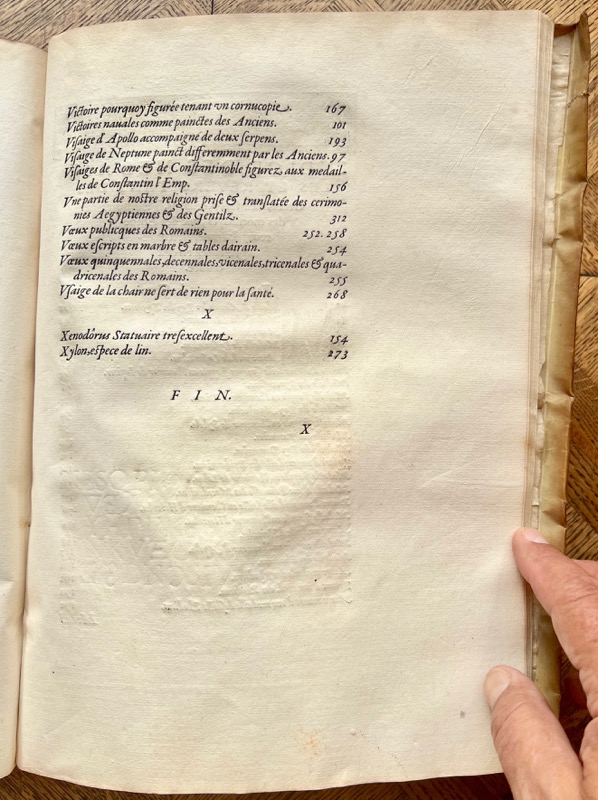 Victoire pourquoy figurée tenant vn cornucopie. 167
Victoires nauales comme painctes des Anciens. 101
Visaige d'Apollo accompaigné de deux serpens. 193
Visaige de Neptune painct differemment par les Anciens. 97
Visaiges de Rome & de Constantinoble figurez aux medail-
les de Constantin l'Emp. 156
Vne partie de nostre religion prise & translatée des cerimo-
nies Aegyptiennes & des Gentilz. 312
Vœux publicques des Romains. 252. 258
Vœux escripts en marbre & tables dairain. 254
Vœux quinquennales, decennales, vicenales, tricenales & qua-
dricenales des Romains. 255
Vsaige de la chair ne sert de rien pour la santé. 268
X
Xenodôrus Statuaire tresexcellent. 154
Xylon, espece de lin. 273
F I N.
X